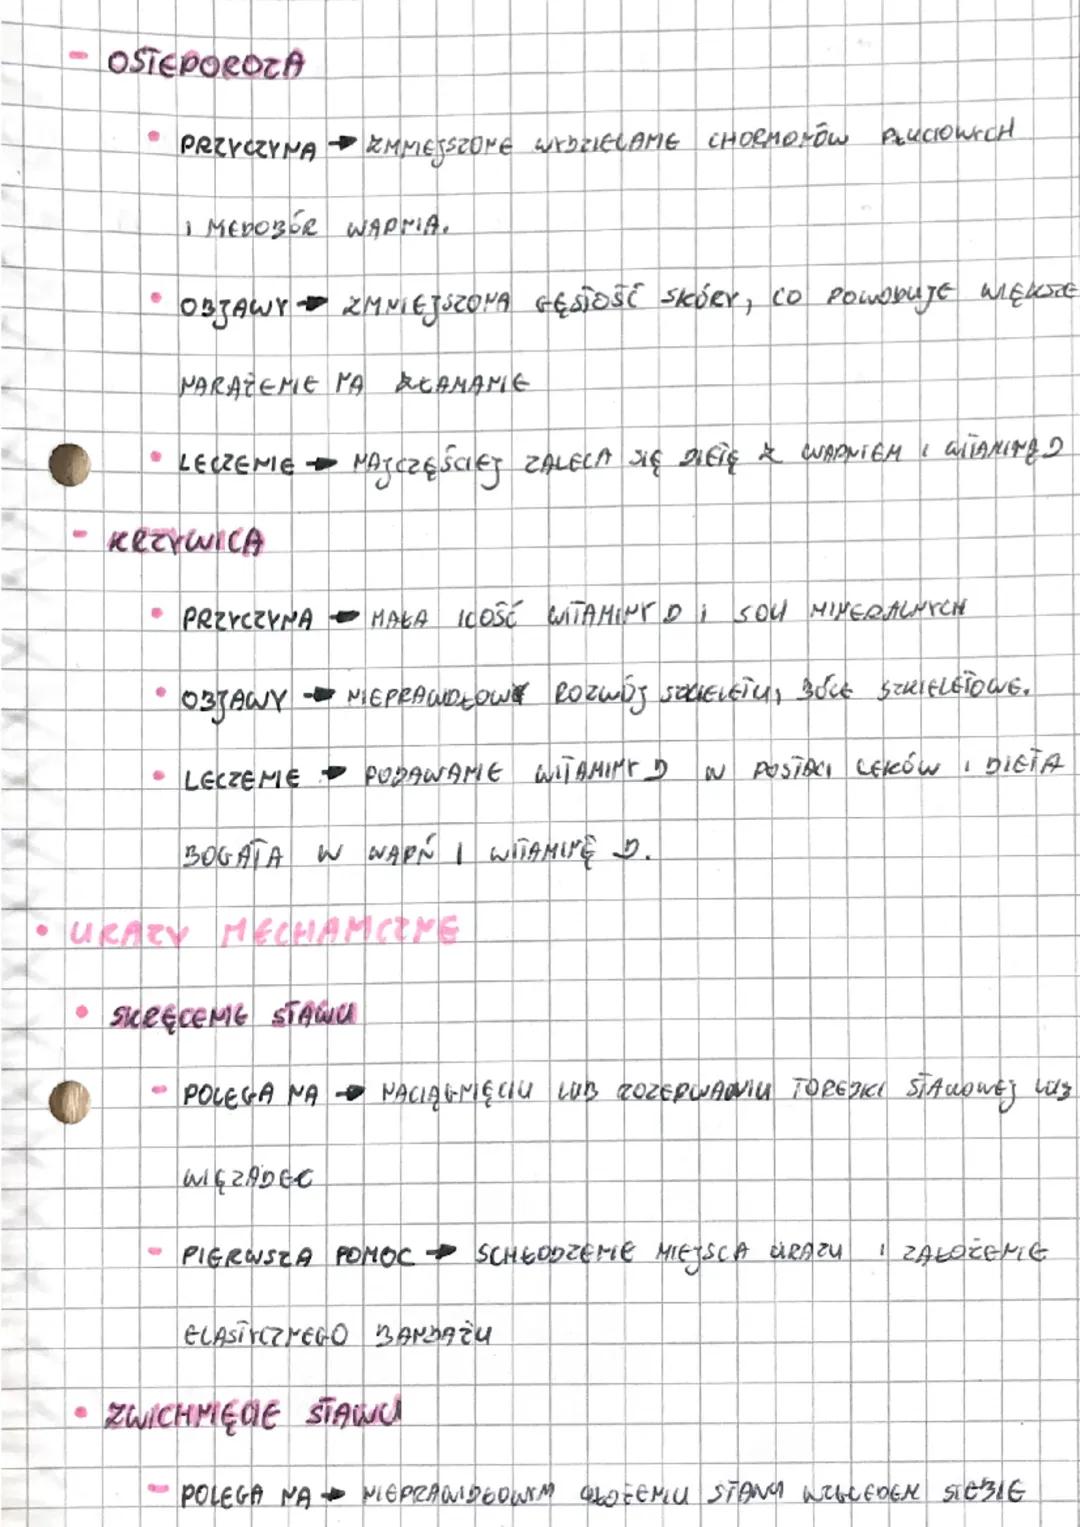 - OSTEPOROZA
• PRZYCZYNA → ZMNIEJSZONE WYDZIELANIE CHORMONÓW PŁUCIOWYCH
I NIEDOBÓR WAPNIA.
• OBJAWY → ZMNIEJSZONA GĘSTOŚĆ SKÓRY, CO POWODUJE WIĘKSZE
NARAŻENIE NA ZŁAMANIE
• LECZENIE → NAJCZĘŚCIEJ ZALECA SIĘ DIETĘ Z WAPNIEM I WITAMINĄ D
- KRZYWICA
• PRZYCZYNA → MAŁA ILOŚĆ WITAMINY D I SOLI MINERALNYCH
• OBJAWY → NIEPRAWDŁOWY ROZWÓJ SZKIELETU, BÓLE SZKIELETOWE.
• LECZENIE → PODAWANIE WITAMINY D W POSTACI LEKÓW I DIETA
BOGATA W WAPŃ I WITAMINĘ D.
• URAZY MECHANICZNE
• SKRĘCENIE STAWU
- POLEGA NA → NACIĄGNIĘCIU LUB ROZERWANIU TOREBKI STAWOWEJ LUB
WIĘZADEŁ
- PIERWSZA POMOC → SCHŁODZENIE MIEJSCA URAZU I ZAŁOŻENIE
ELASTYCZNEGO BANDAŻU
• ZWICHNIĘCIE STAWU
- POLEGA NA → NIEPRAWIDŁOWYM UŁOŻENIU STAWU WZGLĘDEM SIEBIE